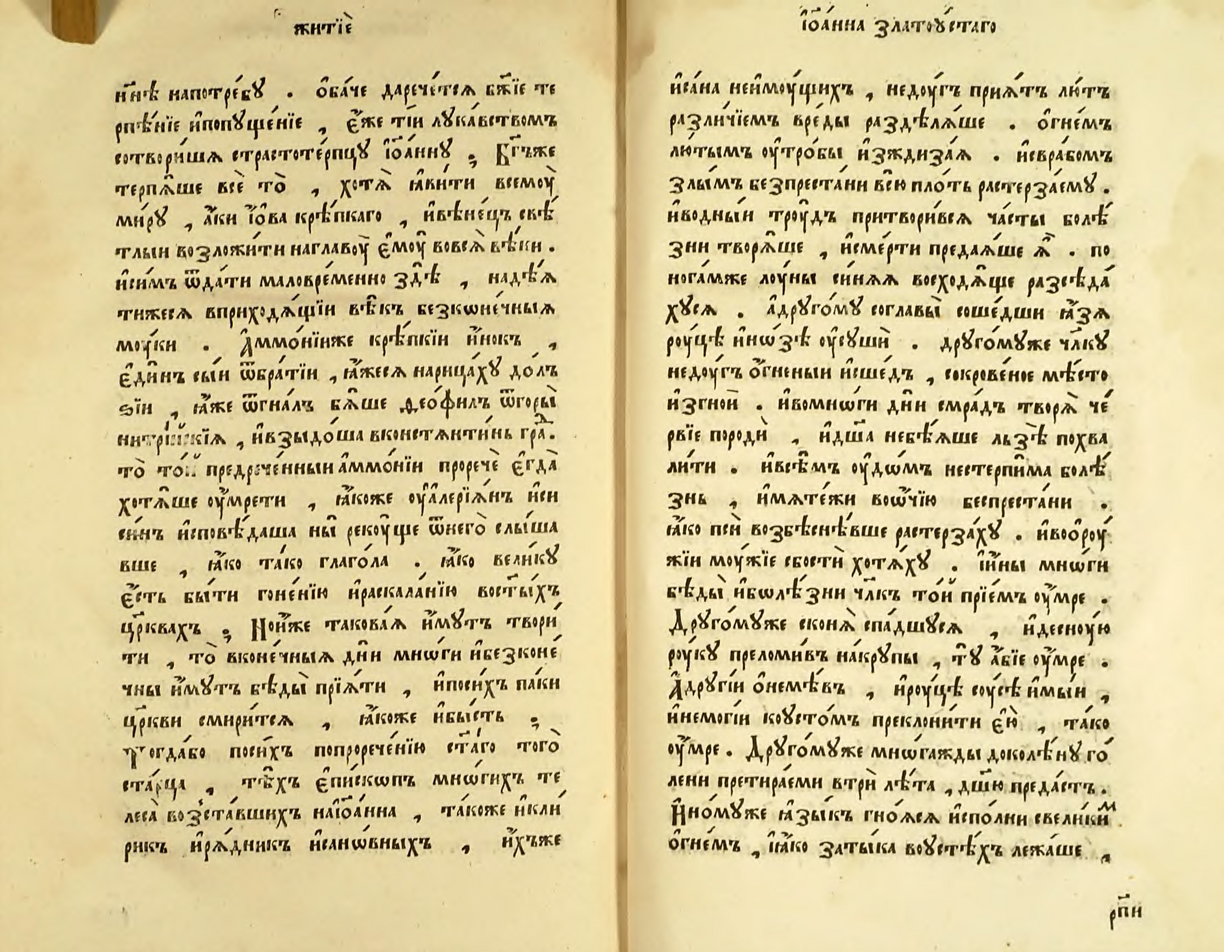 житїѐ
нн҃ѣ напотре́бꙋ . ѻ҆ба́че дарече́тсѧ бж҃їе те
рпѣ́нїе и҆попꙋще́нїе , є҆́же ті́и лꙋка́вствомъ
сотвори́шѧ страстоте́рпцꙋ і҆ѡа́ннꙋ . Бг҃ъже
терпѧ́ше всѐ то̀ , хотѧ̀ ꙗ҆ви́ти всемоу̀
ми́рꙋ , а҆́ки і҆́ѡва крѣ́пкаго , и҆вѣне́цъ свѣ́
тлыи возложи́ти наглавоу̀ є҆моу̀ вовсѧ̀ вѣ́ки .
и҆си́мъ ѿда́ти маловре́менно здѣ̀ , надѣ́ѧ
тижесѧ вприходѧ́щїи вѣ́къ безкѡне́чныѧ
моу́ки . А҆ммо́нїиже крѣ́пкїи и҆́нокъ ,
є҆ди́нъ сы́и ѿбра́тїи , ꙗ҆́жесѧ нарица́хꙋ долъ
ѕі́и , ꙗ҆́же ѿгна́лъ бѧ́ше ѳео́филъ ѿгоры̀
нитрі́искїѧ , и҆взыдо́ша вконстѧнти́нь гра́д.
то̀ то́и предрече́нныи а҆ммо́нїи проречѐ є҆гда̀
хотѧ́ше оу҆мре́ти , ꙗ҆́коже оу҆алерїѧ́нъ и҆си
си́нъ и҆сповѣ́даша ны̀ рекоу́ще ѿнего̀ слы́ша
вше , ꙗ҆́ко та́ко глаго́ла . ꙗ҆́ко вели́кꙋ
є҆́сть бы́ти гоне́нїю и҆раскала́нїю вост҃ы́хъ
цр҃квахъ . Но́иже такова́ѧ и҆́мꙋтъ твори́
ти , то̀ вконе́чныѧ дн҃и мнѡ́ги и҆безконе́
чны и҆́мꙋтъ бѣ́ды прїѧ́ти , и҆поси́хъ па́ки
цр҃кви смири́тсѧ , ꙗ҆́коже и҆бы́сть .
Тогда́бо поси́хъ попроре́ченїю ст҃а́го того̀
ста́рца , тѣ́хъ є҆пи́скѡпъ мнѡ́гихъ те
леса̀ возста́вшихъ наі҆ѡа́нна , та́коже и҆кли́
рикъ и҆рѧ́дникъ и҆санѡ́вныхъ , и҆́хъже
і҆ѡа́нна златоꙋ́стаго
и҆са́на неи҆моу́щихъ , недоу́гъ прїѧ́тъ лю́тъ
разли́чїемъ вре́ды раздѣлѧ́ше . ѻ҆гне́мъ
лю́тымъ оу҆тро́бы и҆зждиза́ѧ . и҆свра́бомъ
злы́мъ безпреста́ни всю̀ пло́ть растерза́емꙋ .
и҆во́дныи троу́дъ притвори́всѧ ча́сты болѣ́
зни творѧ́ше , и҆сме́рти предаѧ́ше ѧ҆̀ . по
нога́мже лоу́ны си́нѧѧ восходѧ́ще разсѣда́
хꙋсѧ . а҆дрꙋго́мꙋ соглавы̀ соше́дши ꙗ҆зѧ
роу́цѣ и҆нѡ́зѣ оу҆сꙋшѝ . дрꙋго́мꙋже чл҃кꙋ
недоу́гъ ѻ҆́гненыи и҆ше́дъ , сокрове́ное мѣ́сто
и҆згно́и . и҆вомнѡ́ги дн҃и смра́дъ творѧ̀ че́
рвїе породѝ , и҆дш҃а небѣѧ́ше льзѣ̀ похва
ли́ти . и҆всѣ́мъ оу҆дѡ́мъ нестерпи́ма болѣ́
знь , и҆мѧте́жи воѻ҆́чїю беспреста́ни .
ꙗ҆́ко псѝ возбѣснѣ́вше растерза́хꙋ . и҆воѻ҆роу́
жїи моу́жїе сбостѝ хотѧ́хꙋ . и҆и҆́ны мнѡ́ги
бѣ́ды и҆бѡлѣ́зни чл҃къ то́и прїе́мъ оу҆́мре .
Дрꙋго́мꙋже сконѧ̀ спа́дшꙋсѧ , и҆десноу́ю
роу́кꙋ преломи́въ накрꙋпы̀ , тꙋ̀ а҆́бїе оу҆́мре .
А҆дрꙋгі́и ѻ҆немѣ́въ , и҆роу́цѣ соу́сѣ и҆мы́и ,
и҆немогі́и коусто́мъ преклони́ти є҆ю̀ , та́ко
оу҆́мре . Дрꙋго́мꙋже мнѡга́жды доколѣ́нꙋ го́
лени претира́еми втрѝ лѣ́та , дш҃ю преда́стъ .
И҆но́мꙋже ꙗ҆зы́къ гноѧ́сѧ и҆спо́лни свели́ким
ѻ҆гне́мъ , ꙗ҆́ко заты́ка воустѣ́хъ лежа́ше ,
рп҃и